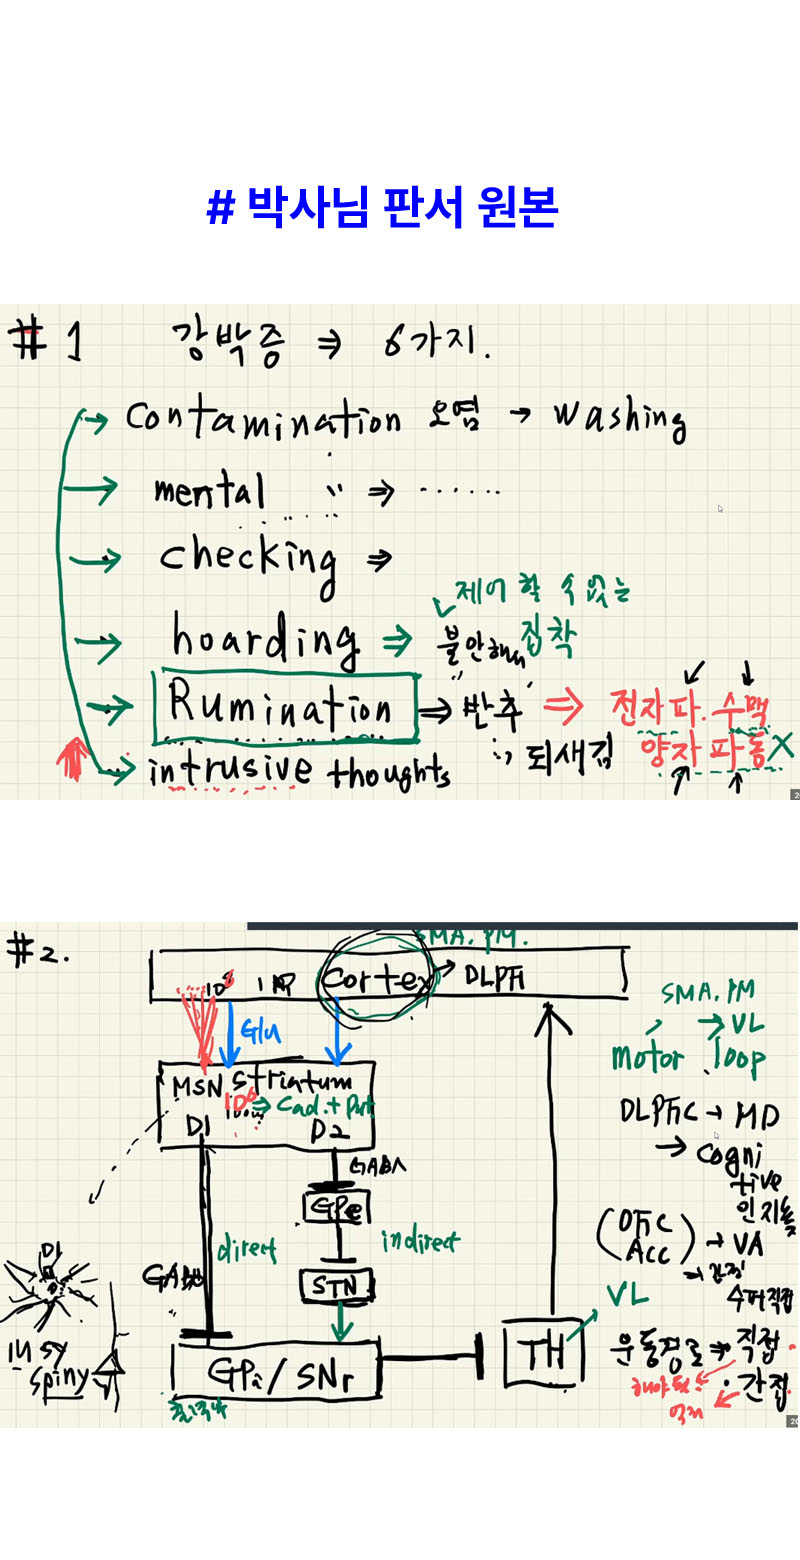 # 박사님 판서 원본
# 1 강박증 ⇒ 6가지.
→ contamination 오염 → washing
→ mental 〃 ⇒ ······
→ checking ⇒
제어 할 수 없는
→ hoarding ⇒ 불안해 집착
→ Rumination ⇒ 반추 ⇒ 전자파. 수맥
되새김 양자 파동 X
→ intrusive thoughts
# 2.
SMA. PM.
Cortex → DLPFC
SMA, PM
→ VL
Glu
motor loop
MSN striatum
10⁶ ⇒ Cad. + Put
D1 D2
DLPFC → MD
→ cogni
tive
GABA
GPe
direct indirect
(OFC
ACC) → VA
D1
GABA
STN
VL
GPi / SNr
TH
운동경로 ⇒ 직접
· 간접
spiny